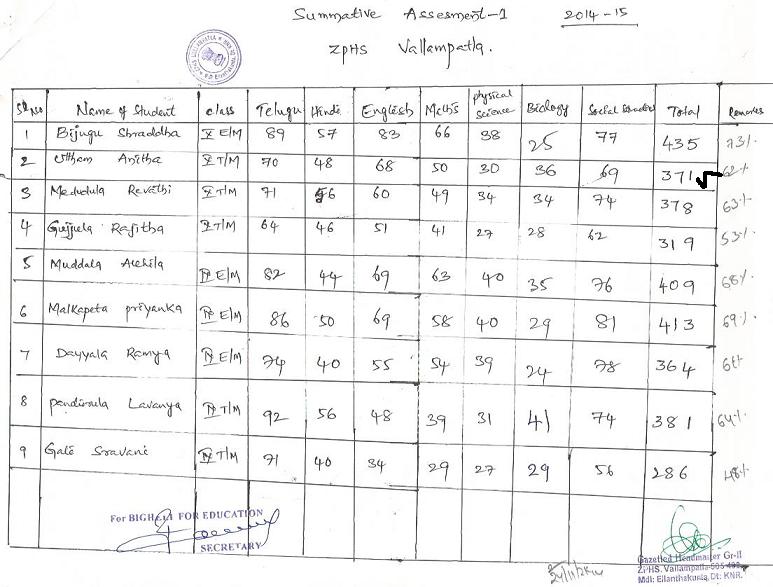 Summative Assesment-1 2014-15
ZPHS Vallampatla.
Sl No Name of Student class Telugu Hindi English Maths physical science Biology Social Studies Total Remarks
1 Bijugu Shraddha X E/M 89 57 83 66 38 25 77 435 73%
2 Uttham Anitha X T/M 70 48 68 50 30 36 69 371 62%
3 Medudula Revathi X T/M 71 56 60 49 34 34 74 378 63%
4 Gujjula Rajitha X T/M 64 46 51 41 27 28 62 319 53%
5 Muddala Akhila IX E/M 82 44 69 63 40 35 76 409 68%
6 Malkapeta priyanka IX E/M 86 50 69 58 40 29 81 413 69%
7 Dayyala Ramya IX E/M 74 40 55 54 39 24 78 364
8 pendirula Lavanya IX T/M 92 56 48 39 31 41 74 381 64%
9 Gale Sravani IX T/M 71 40 34 29 27 29 56 286 48%
For BIGHELP FOR EDUCATION
SECRETARY
Gazetted Headmaster Gr-II
ZPHS. Vallampatla-505
Mdl: Ellanthakunta, Dt: KNR.